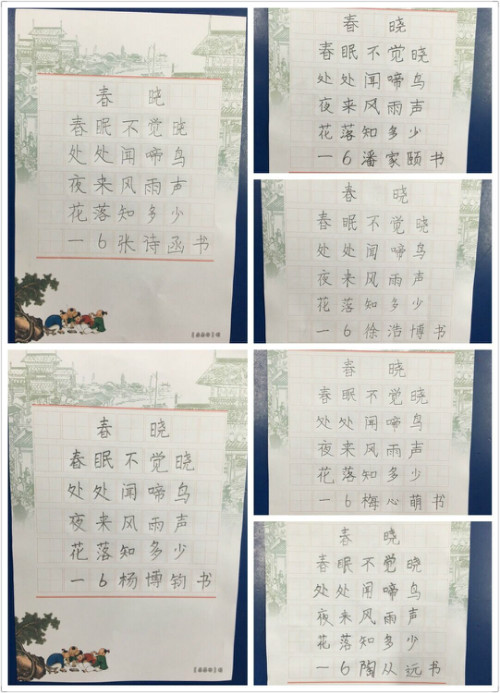 春 晓
春眠不觉晓
处处闻啼鸟
夜来风雨声
花落知多少
一6张诗函书
春 晓
春眠不觉晓
处处闻啼鸟
夜来风雨声
花落知多少
一6潘家颐书
春 晓
春眠不觉晓
处处闻啼鸟
夜来风雨声
花落知多少
一6徐浩博书
春 晓
春眠不觉晓
处处闻啼鸟
夜来风雨声
花落知多少
一6杨博钧书
春 晓
春眠不觉晓
处处闻啼鸟
夜来风雨声
花落知多少
一6梅心萌书
春 晓
春眠不觉晓
处处闻啼鸟
夜来风雨声
花落知多少
一6陶从远书